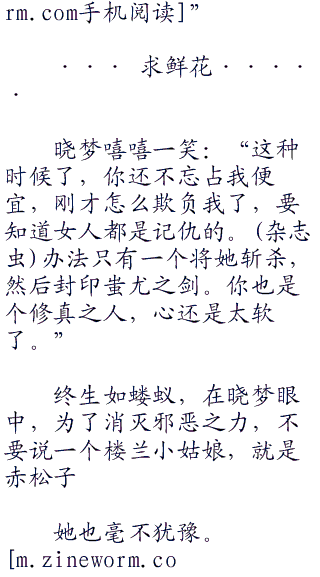 rm.com手机阅读]”
· · · 求鲜花 · · · ·
·
晓梦嘻嘻一笑：“这种
时候了，你还不忘占我便
宜，刚才怎么欺负我了，要
知道女人都是记仇的。(杂志
虫)办法只有一个将她斩杀，
然后封印蚩尤之剑。你也是
个修真之人，心还是太软
了。”
终生如蝼蚁，在晓梦眼
中，为了消灭邪恶之力，不
要说一个楼兰小姑娘，就是
赤松子
她也毫不犹豫。
[m.zineworm.co